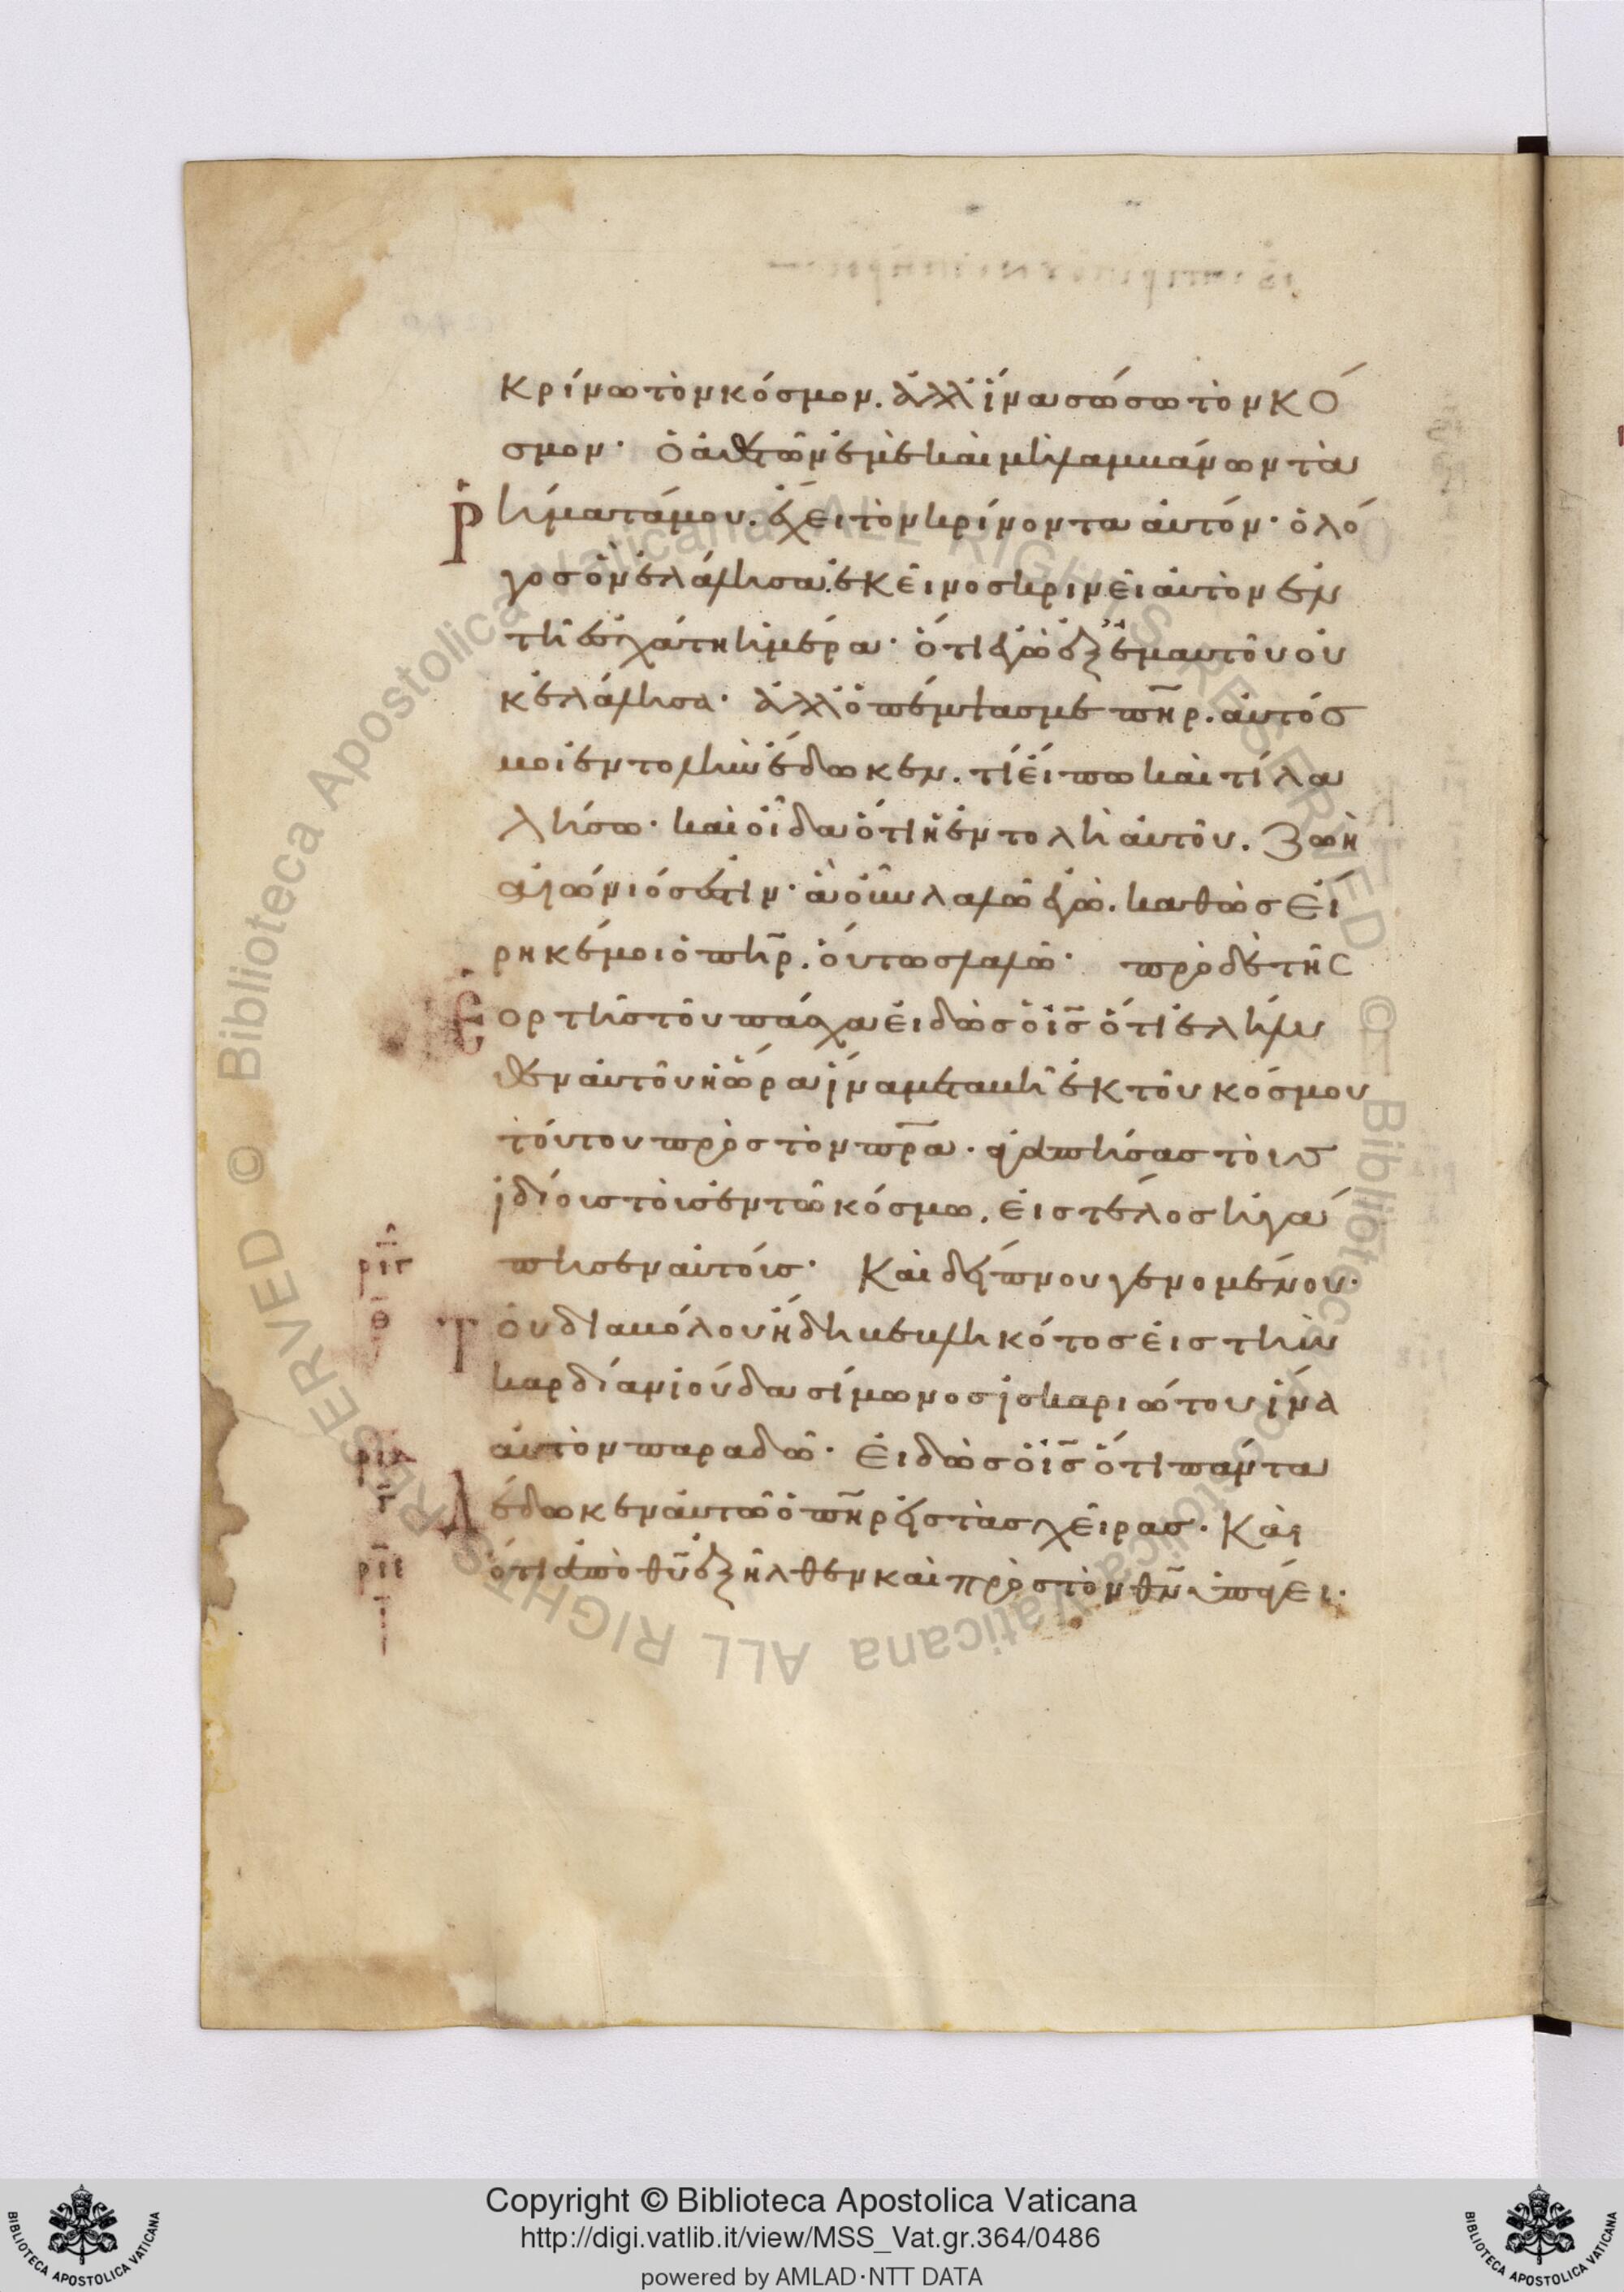 κρίνω τὸν κόσμον. ἀλλ ἵνα σώσω τὸν κό
σμον· ὁ ἀθετῶν ἐμὲ καὶ μὴ λαμβάνων τὰ
ῥήματά μου. ἔχει τὸν κρίνοντα αὐτόν· ὁ λό
γος ὃν ἐλάλησα. ἐκεῖνος κρινεῖ αὐτὸν ἐν
τῆ ἐσχάτη ἡμέρα· ὅτι ἐγὼ ἐξ ἐμαυτοῦ οὐ
κ ἐλάλησα· ἀλλ ὁ πέμψας με πηρ. αὐτός
μοι ἐντολὴν ἔδωκεν. τί εἴπω καὶ τί λα
λήσω. καὶ οἶδα ὅτι ἡ ἐντολὴ αὐτοῦ. ζωὴ
αἰώνιός ἐστιν· ἃ οὖν λαλῶ ἐγὼ. καθὼς εἴ
ρηκέ μοι ὁ πηρ. οὕτως λαλῶ· πρὸ δὲ τῆς
ἑορτῆς τοῦ πάσχα εἰδὼς ὁ ις ὅτι ἐλήλυ
θεν αὐτοῦ ἡ ὥρα ἵνα μεταβῆ ἐκ τοῦ κόσμου
τούτου πρὸς τὸν πρα. ἀγαπήσας τοὺς
ἰδίους τοὺς ἐν τῶ κόσμω. εἰς τέλος ἠγά
πησεν αὐτούς· Καὶ δείπνου γενομένου·
Τοῦ διαβόλου ἤδη βεβληκότος εἰς τὴν
καρδίαν ἰούδα σίμωνος ἰσκαριώτου ἵνα
αὐτὸν παραδῶ· Εἰδὼς ὁ ις ὅτι πάντα
δέδωκεν αὐτῶ ὁ πηρ εἰς τὰς χεῖρας. Καὶ
ὅτι ἀπὸ θυ ἐξῆλθεν καὶ πρὸς τὸν θν ὑπάγει.
Copyright © Biblioteca Apostolica Vaticana
http://digi.vatlib.it/view/MSS_Vat.gr.364/0486
powered by AMLAD·NTT DATA